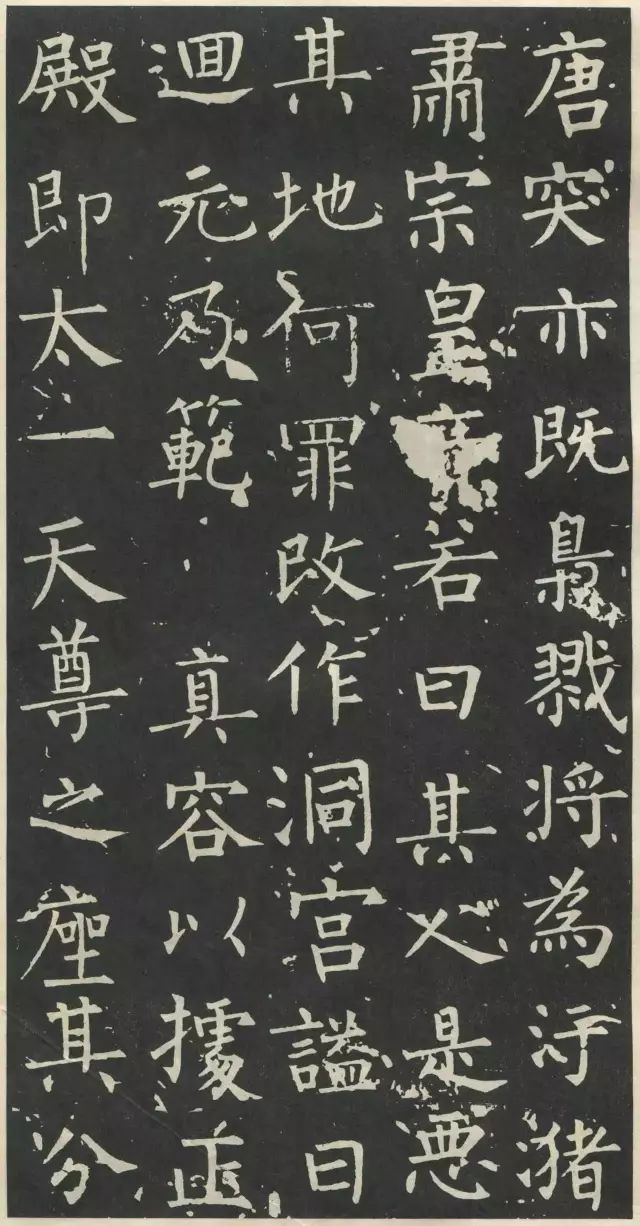 唐突亦既梟戮将為汙潴
肅宗皇帝若曰其人是惡
其地何罪改作洞宫謚曰
迴元乃範 真容以據正
殿即太一天尊之座其分